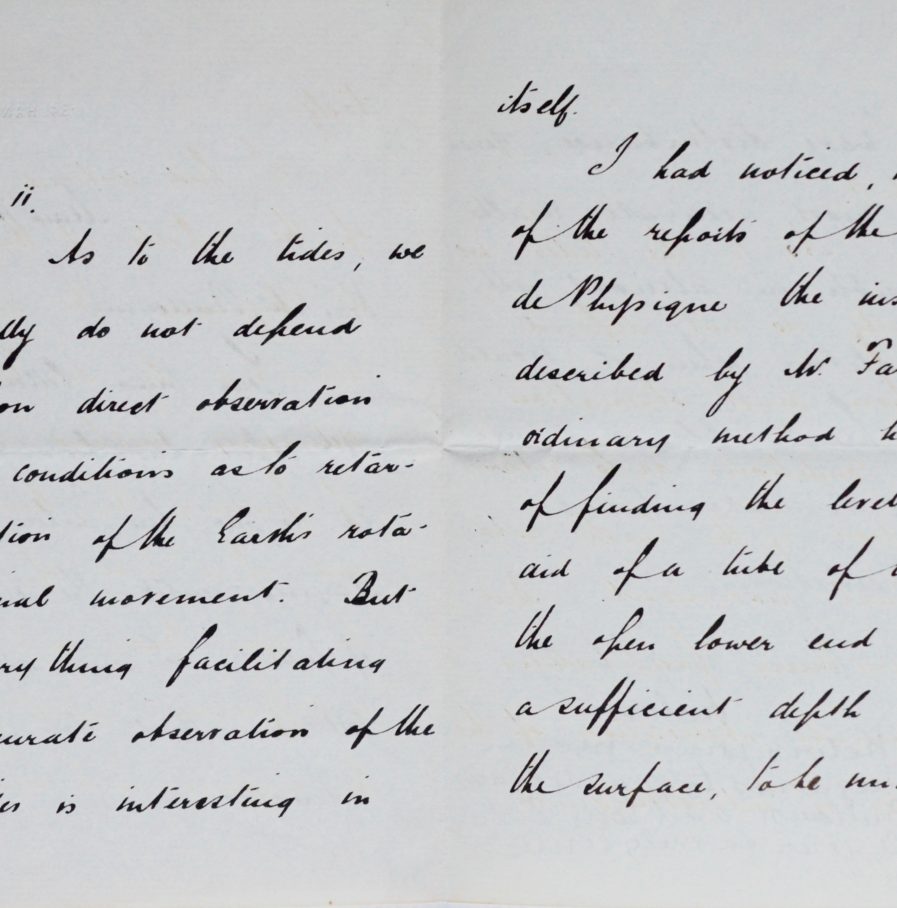 ii.
As to the tides, we
lly do not depend
on direct observation
conditions as to retar-
tion of the Earth's rota-
nal movement. But
ry thing facilitating
curate observation of the
es is interesting in
itself.
I had noticed,
of the reports of the
de Physique the ins
described by M. Fa
ordinary method
of finding the level
aid of a tube of
the open lower end
a sufficient depth
the surface, to be un